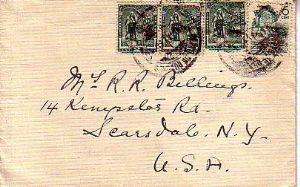 Mrs. R. R. Billings.
14 Kempster Rd.
Scarsdale. N. Y.
U. S. A.